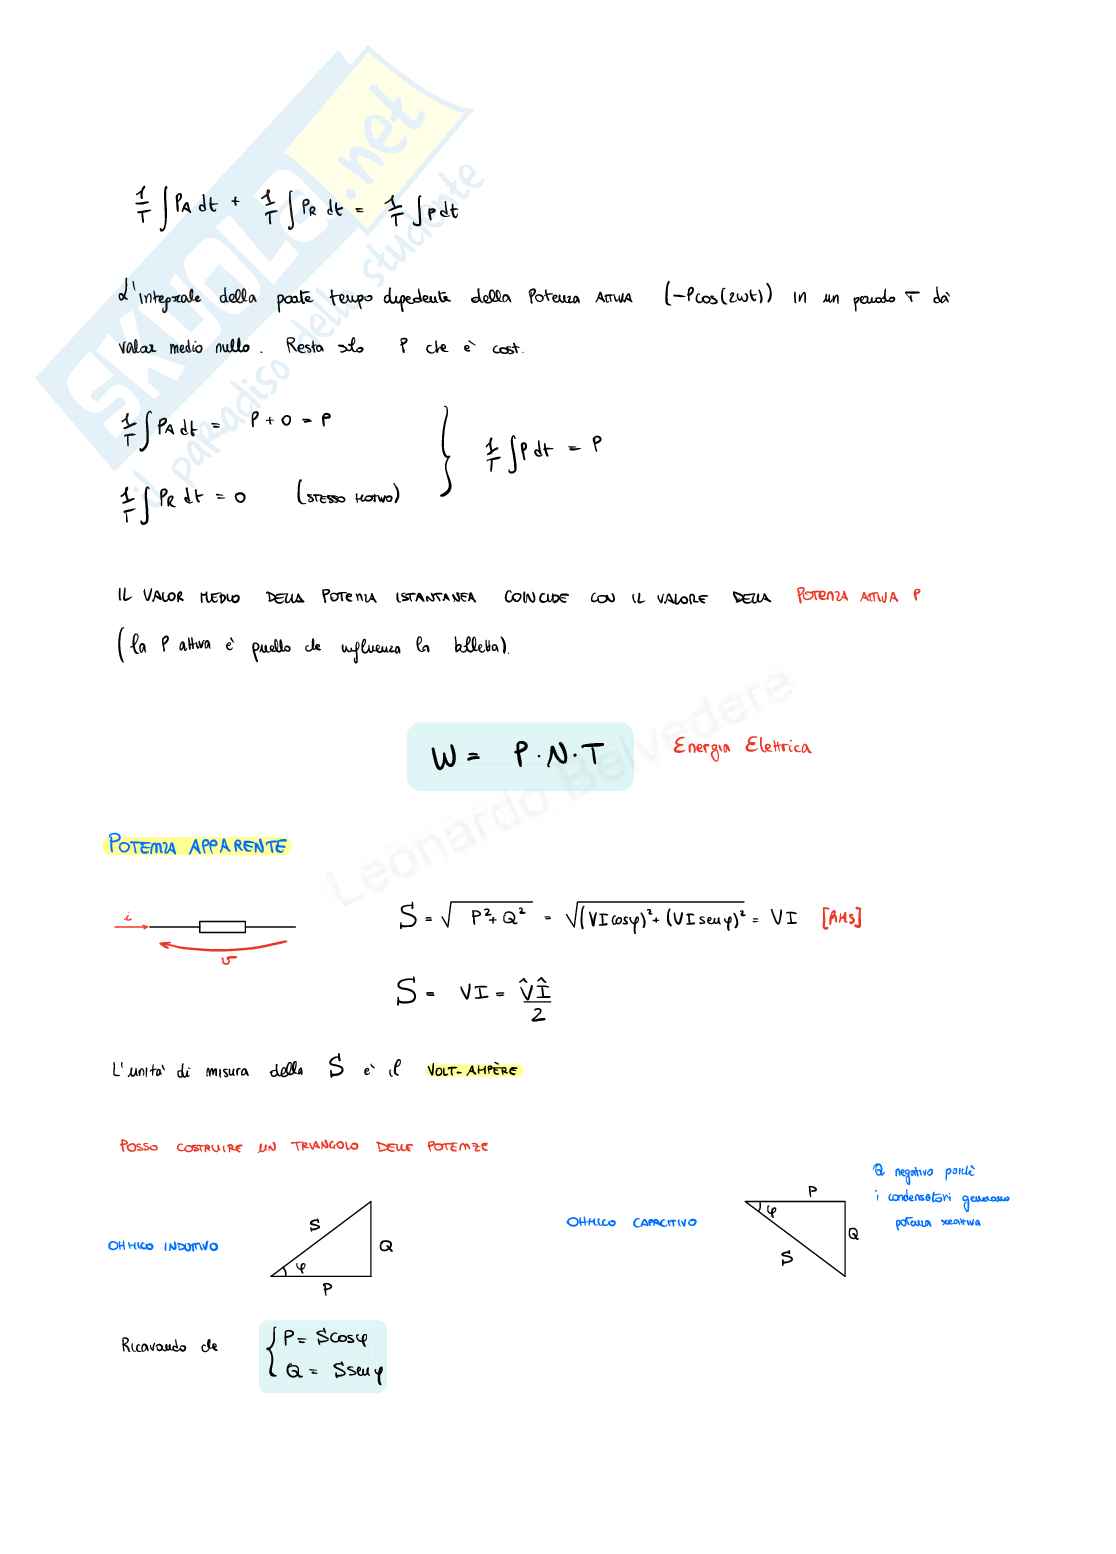 SKUOLA.net
il paradiso dello studente
1/T ∫ PA dt + 1/T ∫ PR dt = 1/T ∫ p dt
L'integrale della parte tempo dipedente della Potenza ATTIVA (-Pcos(2ωt)) in un periodo T dà
valor medio nullo. Resta solo P che è cost.
1/T ∫ PA dt = P + 0 = P
1/T ∫ PR dt = 0 (STESSO MOTIVO)
1/T ∫ P dt = P
IL VALOR MEDIO DELLA POTENZA ISTANTANEA COINCIDE CON IL VALORE DELLA POTENZA ATTIVA P
(la P attiva è quello che influenza la bolletta).
W = P·N·T Energia Elettrica
Leonardo Belvedere
POTENZA APPARENTE
i
v
S = √(P²+Q²) = √((VI cosφ)² + (VI senφ)²) = VI [AMS]
S = VI = V̂Î/2
L'unità di misura della S è il VOLT-AMPÈRE
POSSO COSTRUIRE UN TRIANGOLO DELLE POTENZE
OHMICO INDUTTIVO
S
Q
φ
P
OHMICO CAPACITIVO
P
φ
Q
S
Q negativo poichè
i condensatori generano
potenza reattiva
Ricavando che { P = Scosφ
Q = Ssenφ